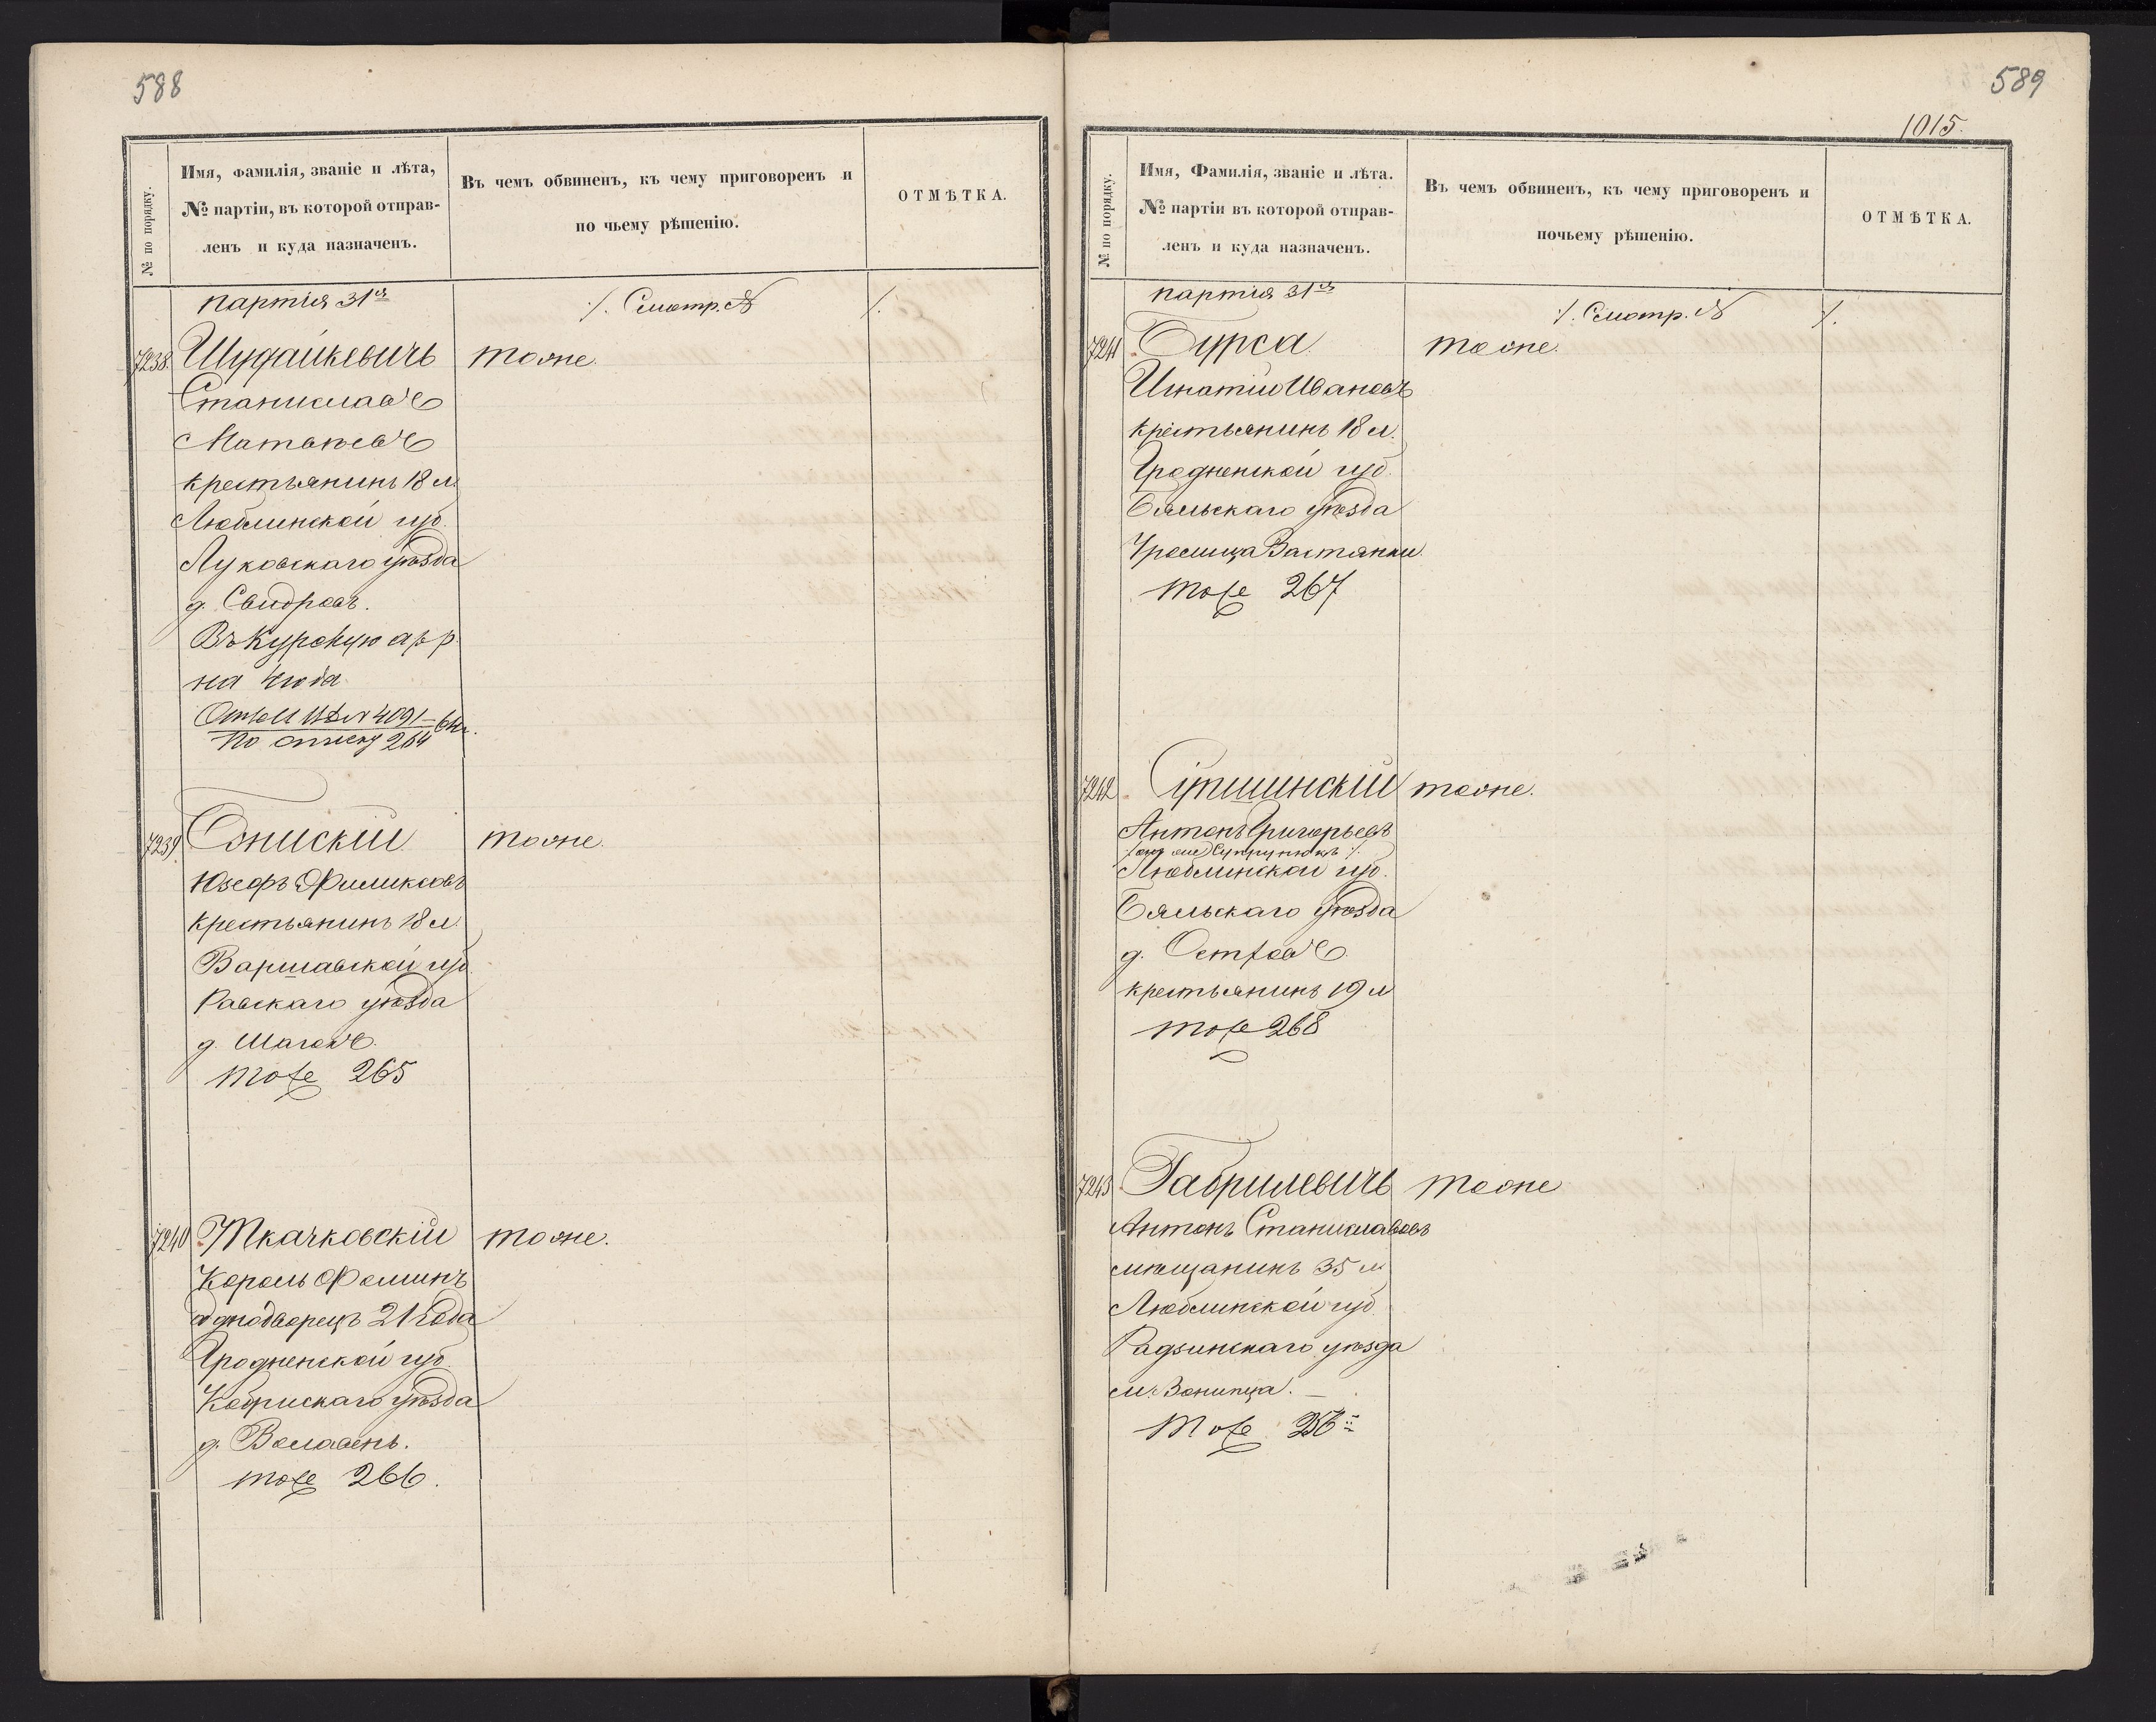 588
№ по порядку.
Имя, фамилія, званіе и лѣта,
№ партіи, въ которой отправ-
ленъ и куда назначенъ.
Въ чемъ обвиненъ, къ чему приговоренъ и
по чьему рѣшенію.
ОТМѢТКА.
партія 31я
/. Смотр. №
/.
7238. Шудайкевичъ тоже.
Станиславъ
Матвѣевъ
крестьянинъ 18 л.
Люблинской губ.
Луковскаго уѣзда
д. Свидровъ.
Въ Курскую ар. р.
на 4 года
4091
По списку 264
7239. Онискій тоже.
Юзефъ Филиксовъ
крестьянинъ 18 л.
Варшавской губ.
Равскаго уѣзда
д.
тоже 265
7240 Ткачковскій тоже.
Король Фоминъ
однодворецъ 21 года
Гродненской губ.
Кобринскаго уѣзда
д.
тоже 266.
589
1015.
№ по порядку.
Имя, Фамилія, званіе и лѣта.
№ партіи въ которой отправ-
ленъ и куда назначенъ.
Въ чемъ обвиненъ, къ чему приговоренъ и
почьему рѣшенію.
ОТМѢТКА.
партія 31я
/. Смотр. №
/.
7241 Бурса. тоже.
Игнатій Ивановъ
крестьянинъ 18 л.
Гродненской губ.
Бяльскаго уѣзда
тоже 267
7242 тоже.
Антонъ Григорьевъ
/онъ же Супрунюкъ/.
Люблинской губ.
Бяльскаго уѣзда
д. Островъ.
крестьянинъ 19 л
тоже 268
7243 Габрилевичъ тоже
Антонъ Станиславовъ
мѣщанинъ 35 л
Люблинской губ.
Радзинскаго уѣзда
м.
тоже